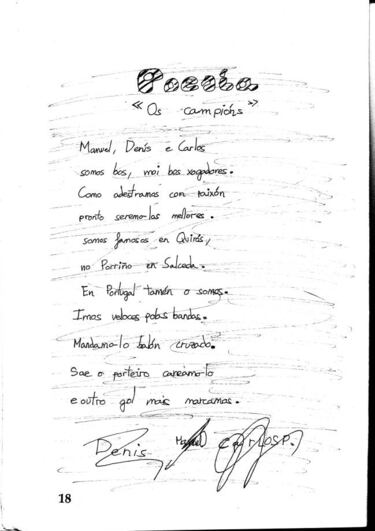 Poesía
"Os campións"
Manuel, Denís e Carlos
somos bos, moi bos xogadores.
Como adestramos con paixón
pronto seremo-los mellores.
somos famosos en Quirós,
no Porriño en Salceda.
En Portugal tamén o somos.
Imos veloces polas bandas.
Mandamo-lo balón cruzado.
Sae o porteiro
e outro gol máis marcamos.
Denis Manuel CARLOS P.
18